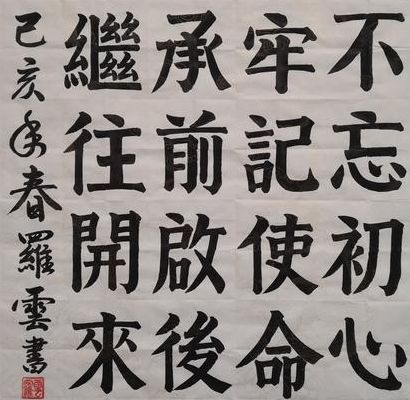 不忘初心
牢記使命
承前啟後
繼往開來
己亥年春羅雲書